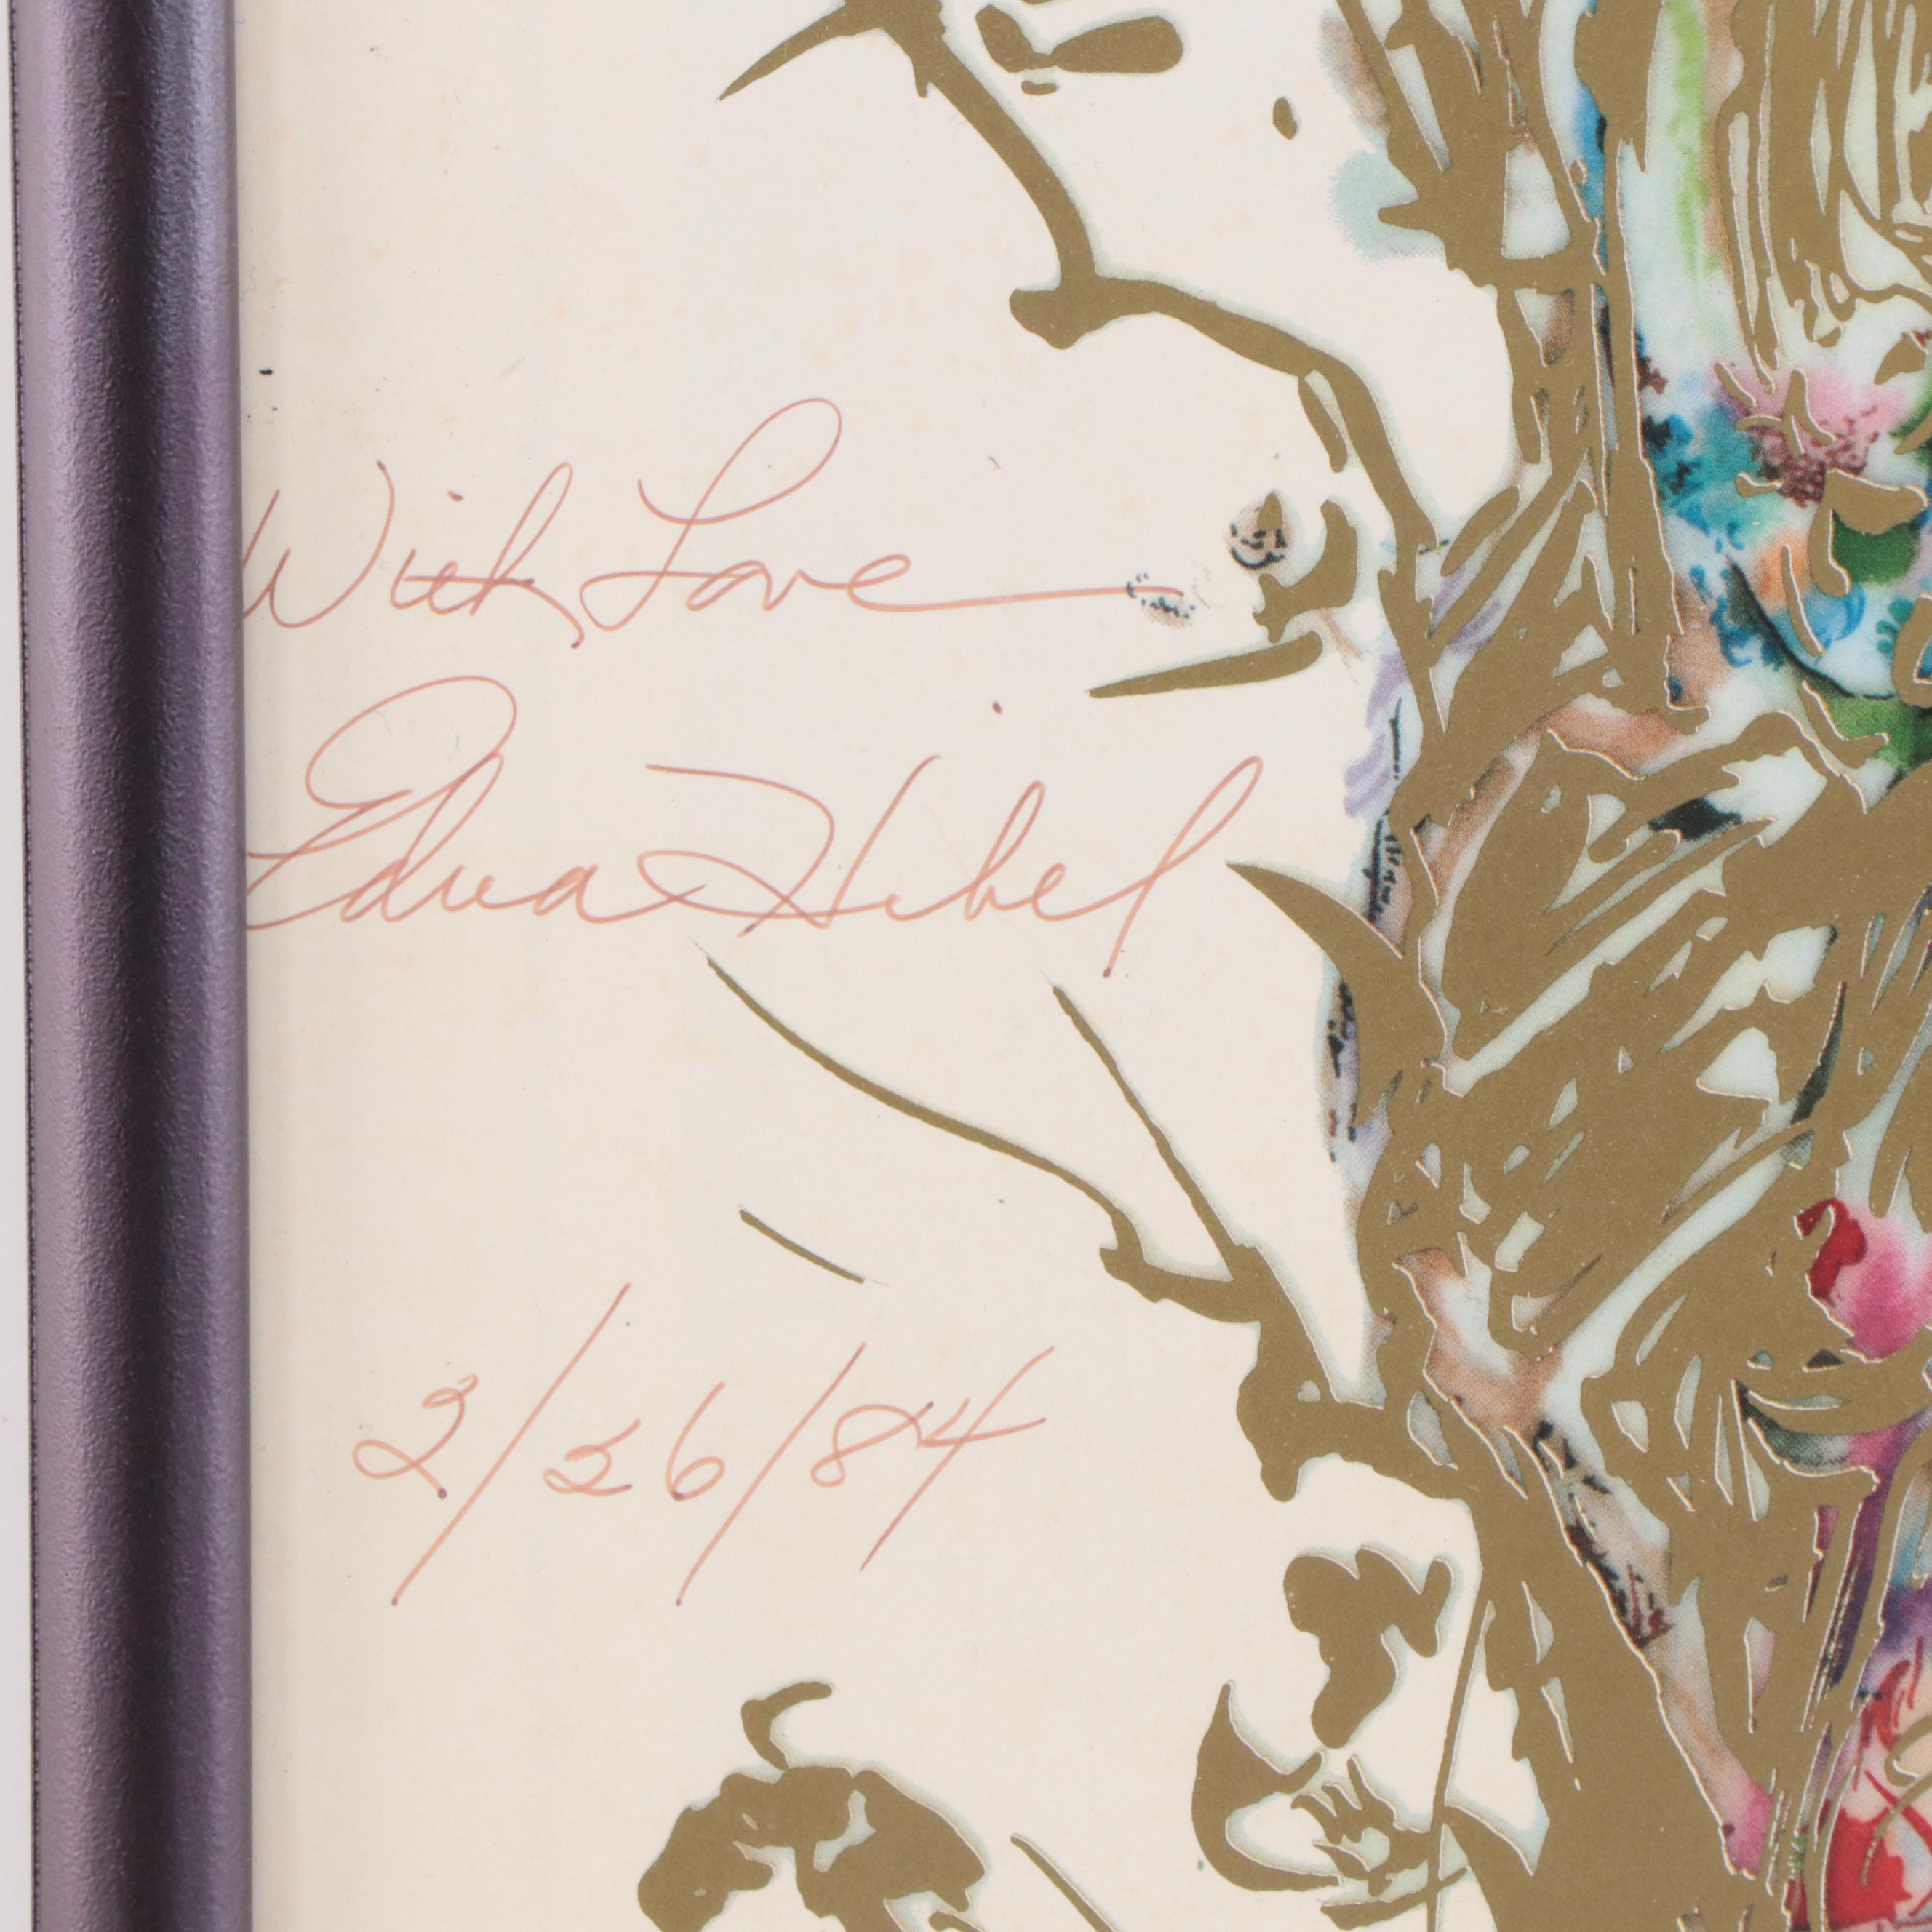 With Love
Edna Hibel
2/26/84